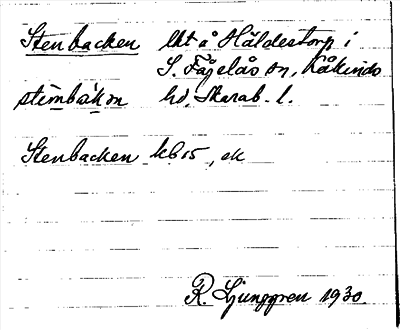 Stenbacken lht å Häldestorp i
S. Fågelås sn, Kåkinds
stèmbàkɐn hd, Skarab. l.
Stenbacken kb 15, ek
R. Ljunggren 1930